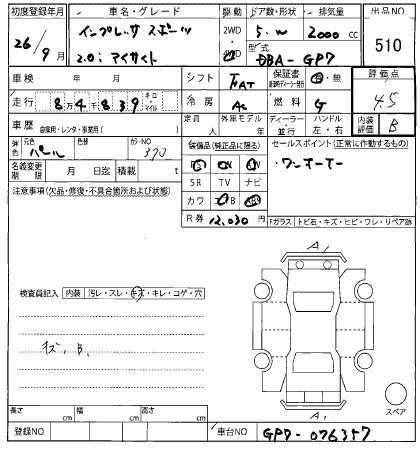 初度登録年月 車名・グレード 駆動 ドア数・形状 排気量 出品NO
26/9月 インプレッサ スポーツ 2WD 5.W 2000cc 510
2.0i アイサイト 4WD 型式 DBA-GP7
車検 年 月 シフト FAT 保証書 有・無 評価点
走行 8万4千839 キロ・マイル 冷房 AC 燃料 G 4.5
車歴 自家用・レンタ・事業用( ) 定員 人 外車モデル 年 ディーラー・並行 ハンドル 左・右 内装評価 B
外色 元色 パール 色替 カラーNO 37J 装備品(純正品に限る) セールスポイント(正常に作動するもの)
名義変更期限 月 日迄 積載 t PS AW ・ワンオーナー
注意事項(欠品・修復・不具合箇所および状態) SR TV ナビ
カワ ABS
R券 12,030円 Fガラス トビ石・キズ・ヒビ・ワレ・リペア跡
A1
検査員記入 内装 汚レ・スレ・キズ・キレ・コゲ・穴
キズ、B.
スペア
長さ cm 幅 cm 高さ cm A1
登録NO 車台NO GP7-076357